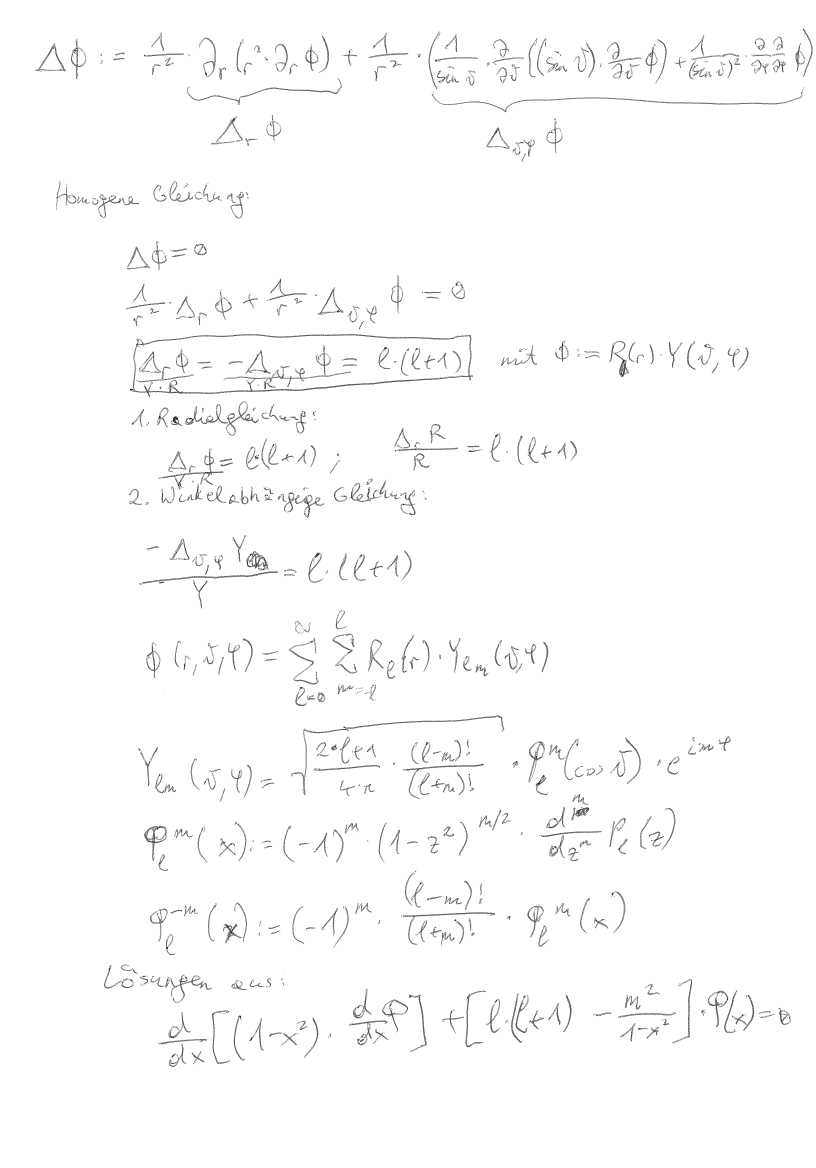 Δϕ := 1/r² · ∂_r (r² · ∂_r ϕ) + 1/r² · (1/sin ϑ · ∂/∂ϑ ((sin ϑ) · ∂/∂ϑ ϕ) + 1/(sin ϑ)² · ∂/∂φ ∂/∂φ ϕ)
Δ_r ϕ Δ_ϑ,φ ϕ
Homogene Gleichung:
Δϕ = 0
1/r² · Δ_r ϕ + 1/r² · Δ_ϑ,φ ϕ = 0
Δ_r ϕ/(Y·R) = -Δ_ϑ,φ ϕ/(Y·R) = l·(l+1) mit ϕ := R(r)·Y(ϑ,φ)
1. Radialgleichung:
Δ_r ϕ/(Y·R) = l·(l+1) ; Δ_r R/R = l·(l+1)
2. Winkelabhängige Gleichung:
-Δ_ϑ,φ Y/Y = l·(l+1)
ϕ(r,ϑ,φ) = ∑_{l=0}^{∞} ∑_{m=-l}^{l} R_l(r) · Y_lm(ϑ,φ)
Y_lm(ϑ,φ) = √((2·l+1)/(4·π) · (l-m)!/(l+m)!) · P_l^m(cos ϑ) · e^{imφ}
P_l^m(x) := (-1)^m · (1-z²)^{m/2} · d^m/dz^m P_l(z)
P_l^{-m}(x) := (-1)^m · (l-m)!/(l+m)! · P_l^m(x)
Lösungen aus:
d/dx [(1-x²) · d/dx P] + [l·(l+1) - m²/(1-x²)] · P(x) = 0